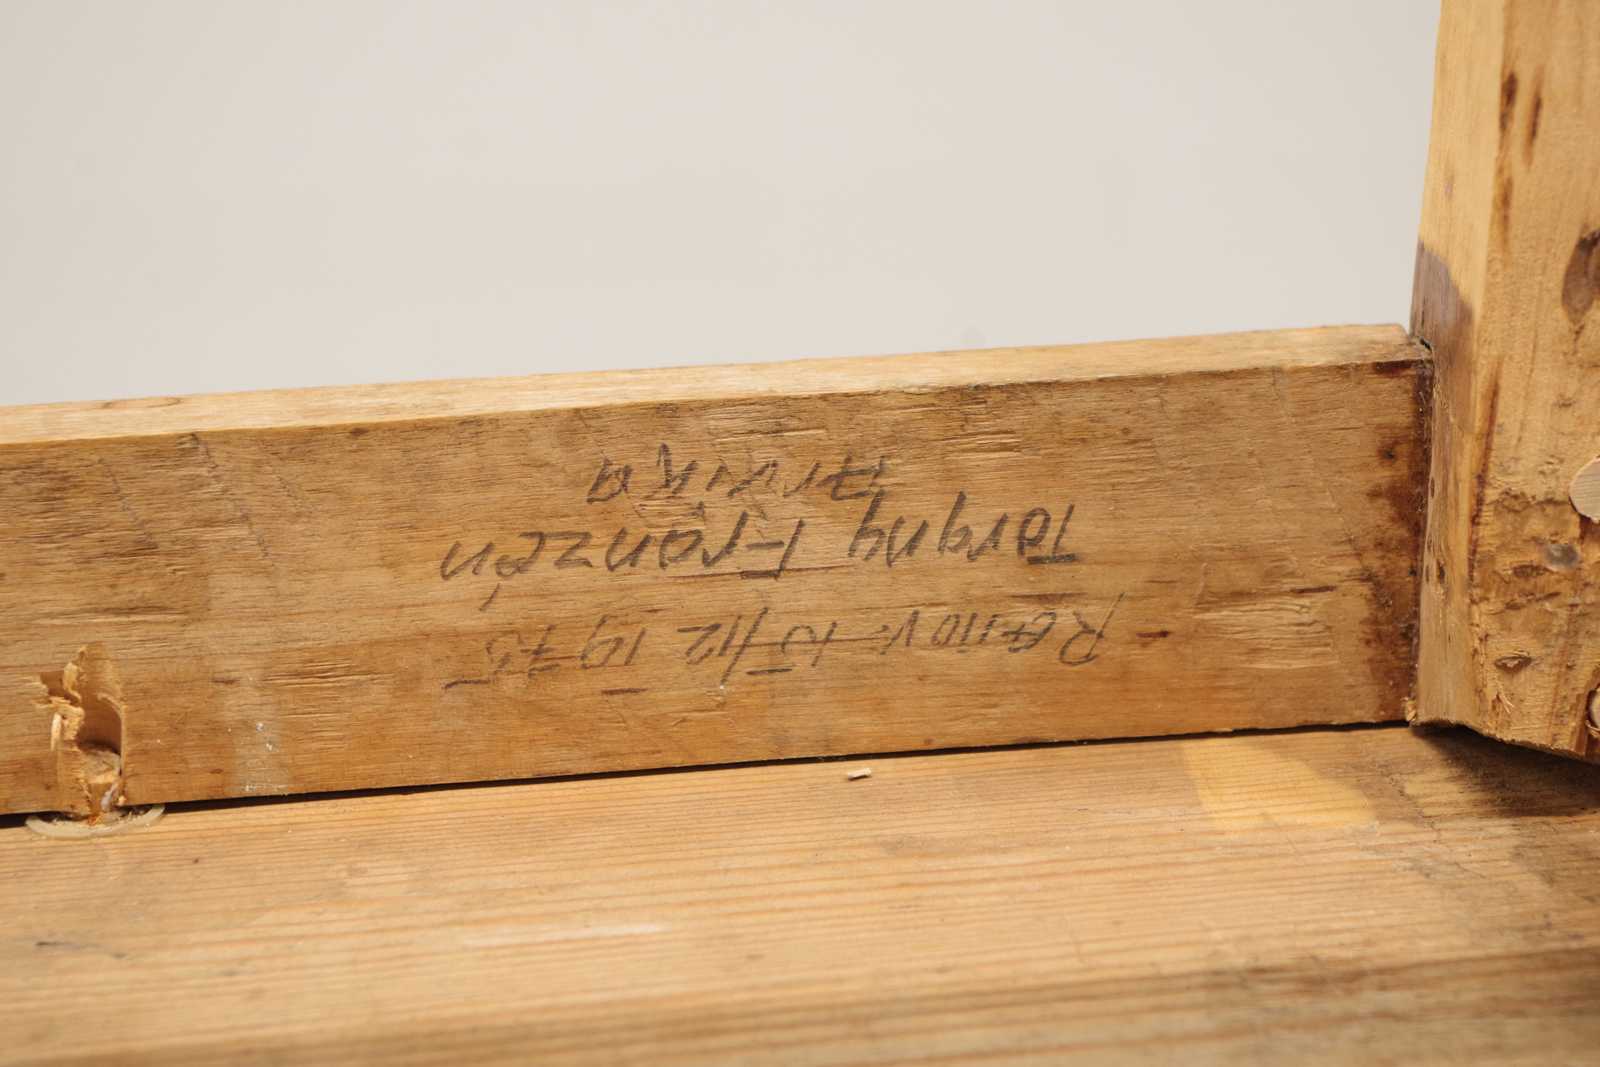 Renov. 15/12 1975
Torgny Franzén
Arvika